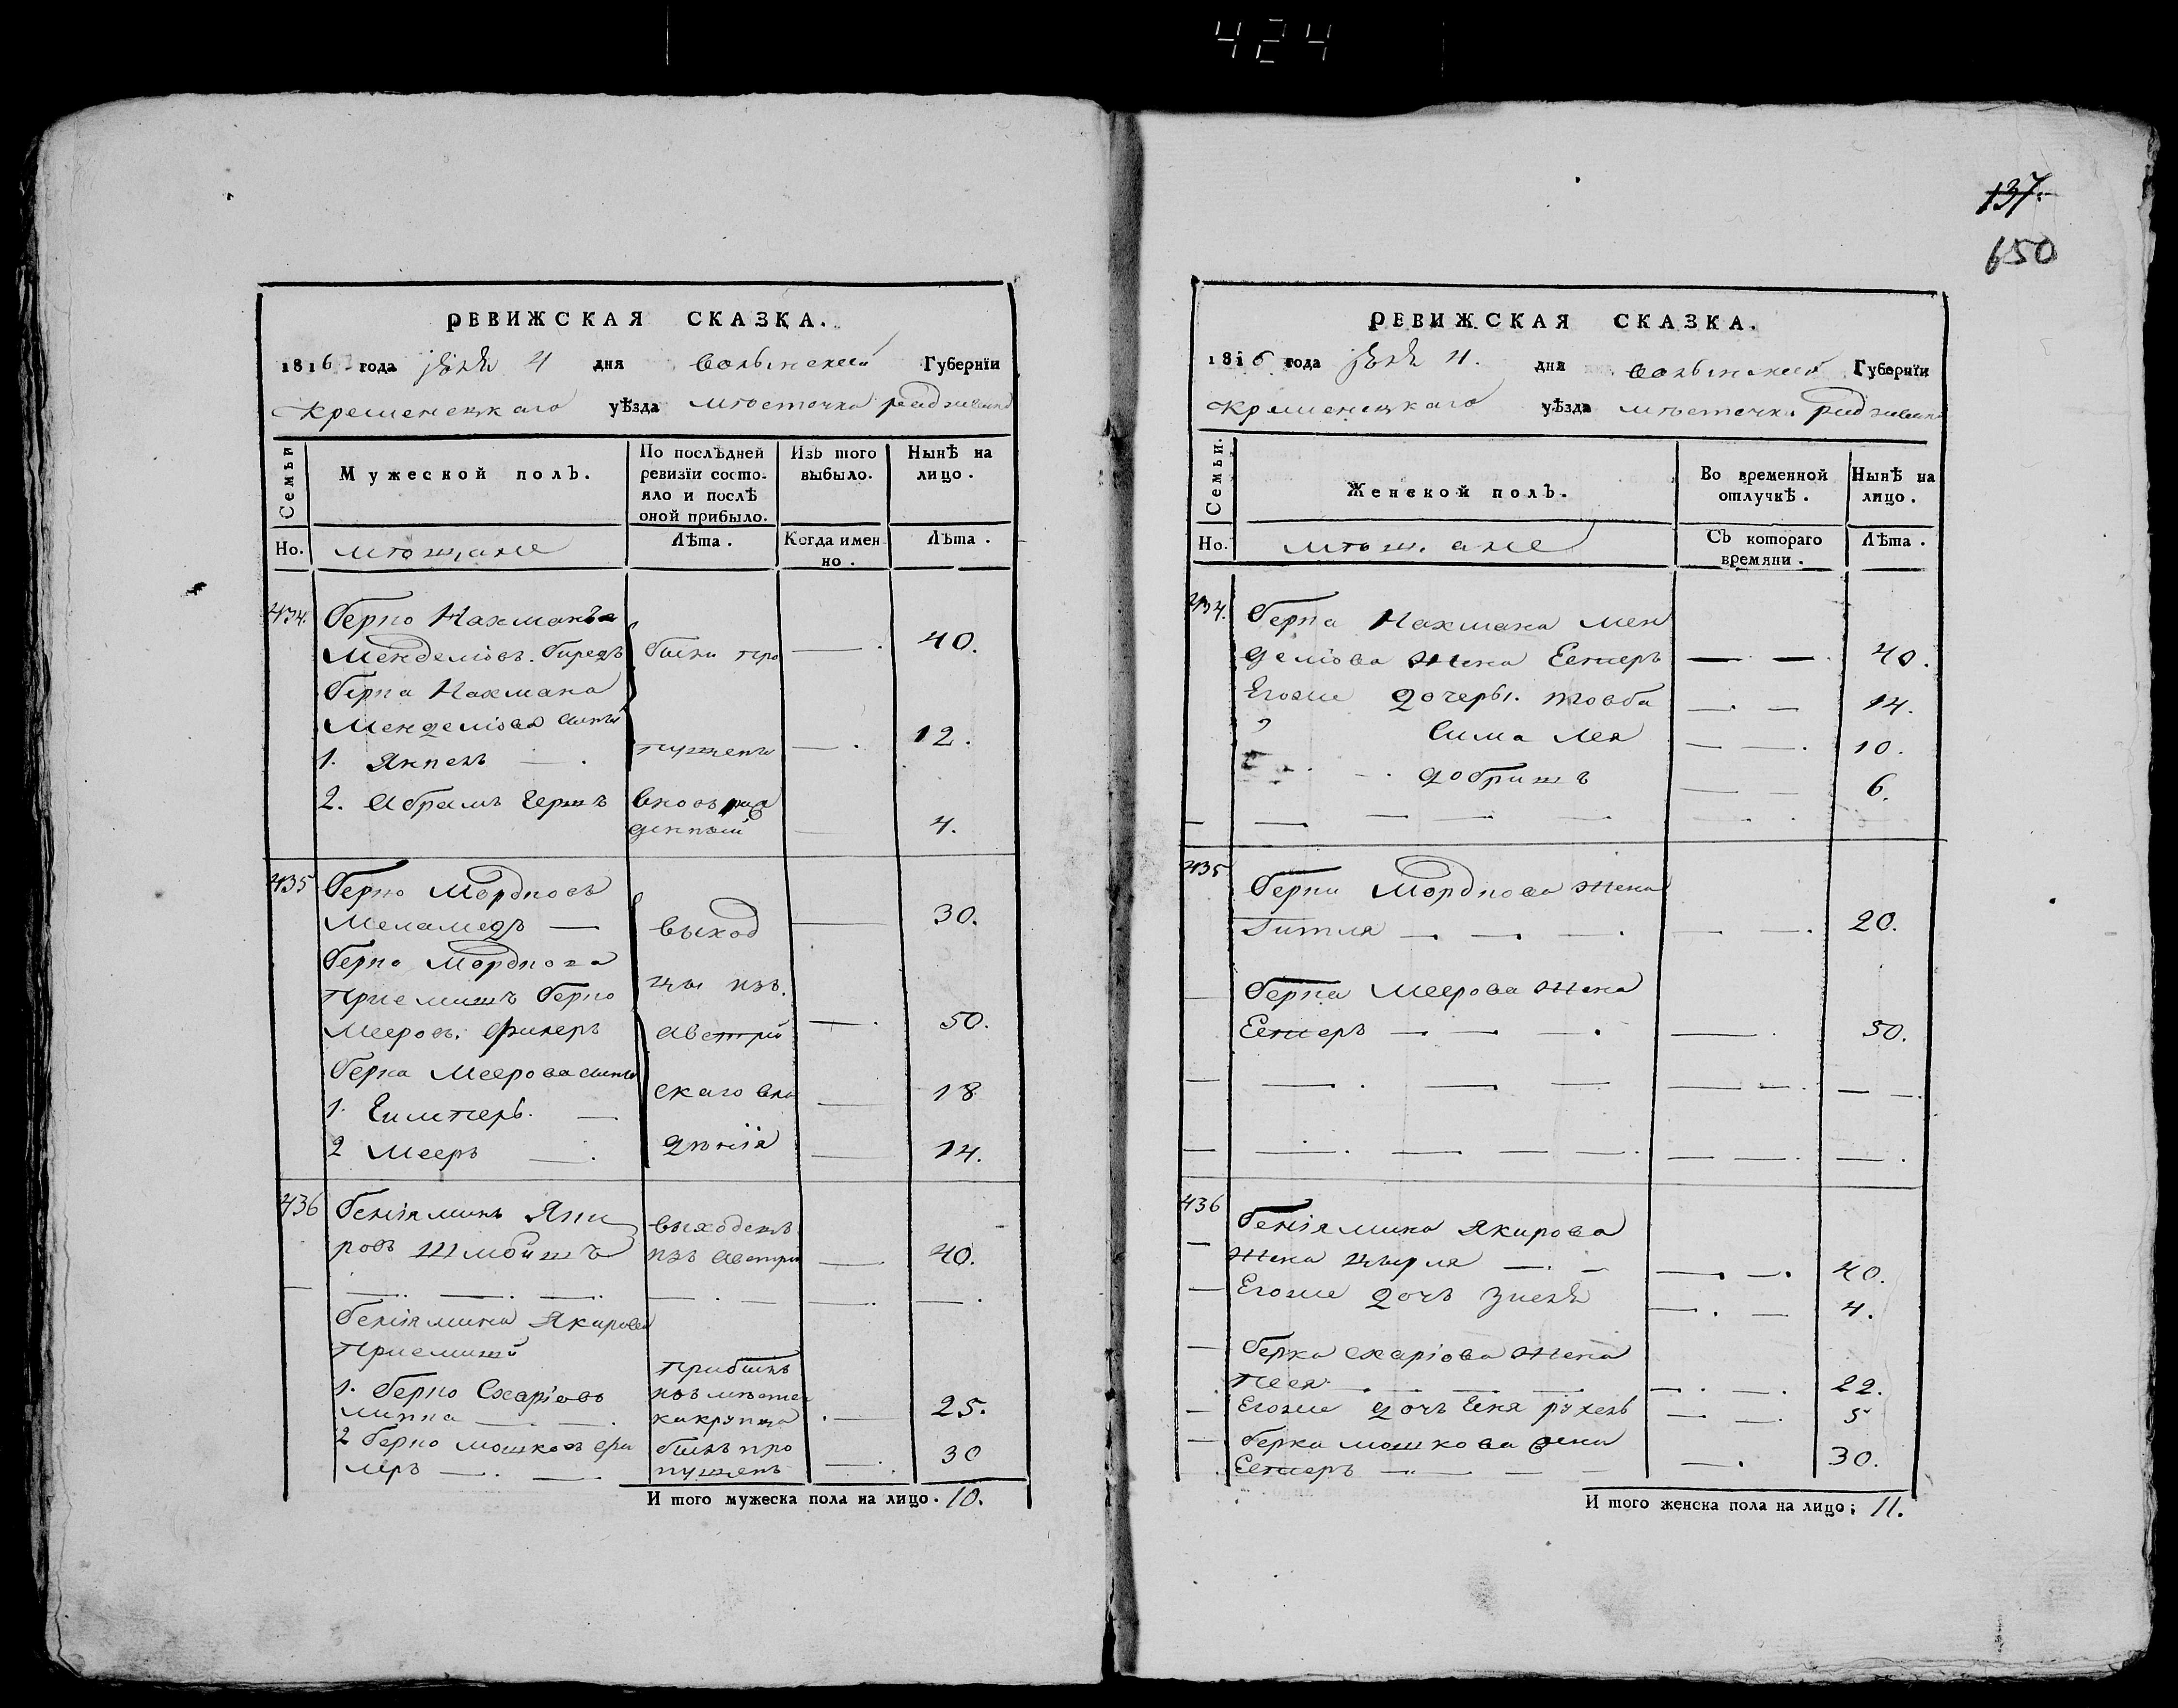 424
РЕВИЖСКАЯ СКАЗКА.
1816 года дня Волынской Губернїи
Кременецкаго уѣзда мѣсточка
Семьи
Мужеской полъ.
По послѣдней ревизїи состо-
яло и послѣ
оной прибыло.
Изъ того
выбыло.
Нынѣ на
лицо.
Но.
мѣщане
Лѣта.
Когда имен
но.
Лѣта.
434. Берко Нахманъ
Менделіовъ были про 40.
Берка Нахмана
Менделіова сынъ
1. Янкель пущены 12.
2. Абрамъ Гершъ вновь рож
денный 4.
435 Берко Мордковъ
Меламедъ выход 30.
Берко Мордкова
приемишъ Берко цы изъ
Мееровъ. Фишеръ Австрій 50.
Берка Меерова сыны
1. скаго вла 18
2 Мееръ дѣнія 14.
436 Беніяминъ Яки
ровъ выходецъ
изъ Австріи 40.
Беніямина Якирова
приемиши
1. Берко прибылъ
изъ мѣстеч
25.
2 Берко Мошковъ
былъ про
пущенъ 30
И того мужеска пола на лицо. 10.
137.
650
РЕВИЖСКАЯ СКАЗКА.
1816 года дня Волынской Губернїи
Кременецкаго уѣзда мѣсточка
Семьи.
Женской полъ.
Во временной
отлучкѣ.
Нынѣ на
лицо.
Но.
мѣщане
Съ котораго
времяни.
Лѣта.
434. Берка Нахмана Мен
деліова жена Естеръ 40.
Егоже дочеры. Товба 14.
Сима Лея 10.
Добришъ 6.
435
Берки Мордкова жена
Гитля 20.
Берка Меерова жена
Естеръ 50.
436
Беніямина Якирова
жена Цыпля 40.
Егоже дочь 4.
Берка жена
Песя 22.
Егоже дочь рухель 5
Берка Мошкова жена
Естеръ 30.
И того женска пола на лицо; 11.